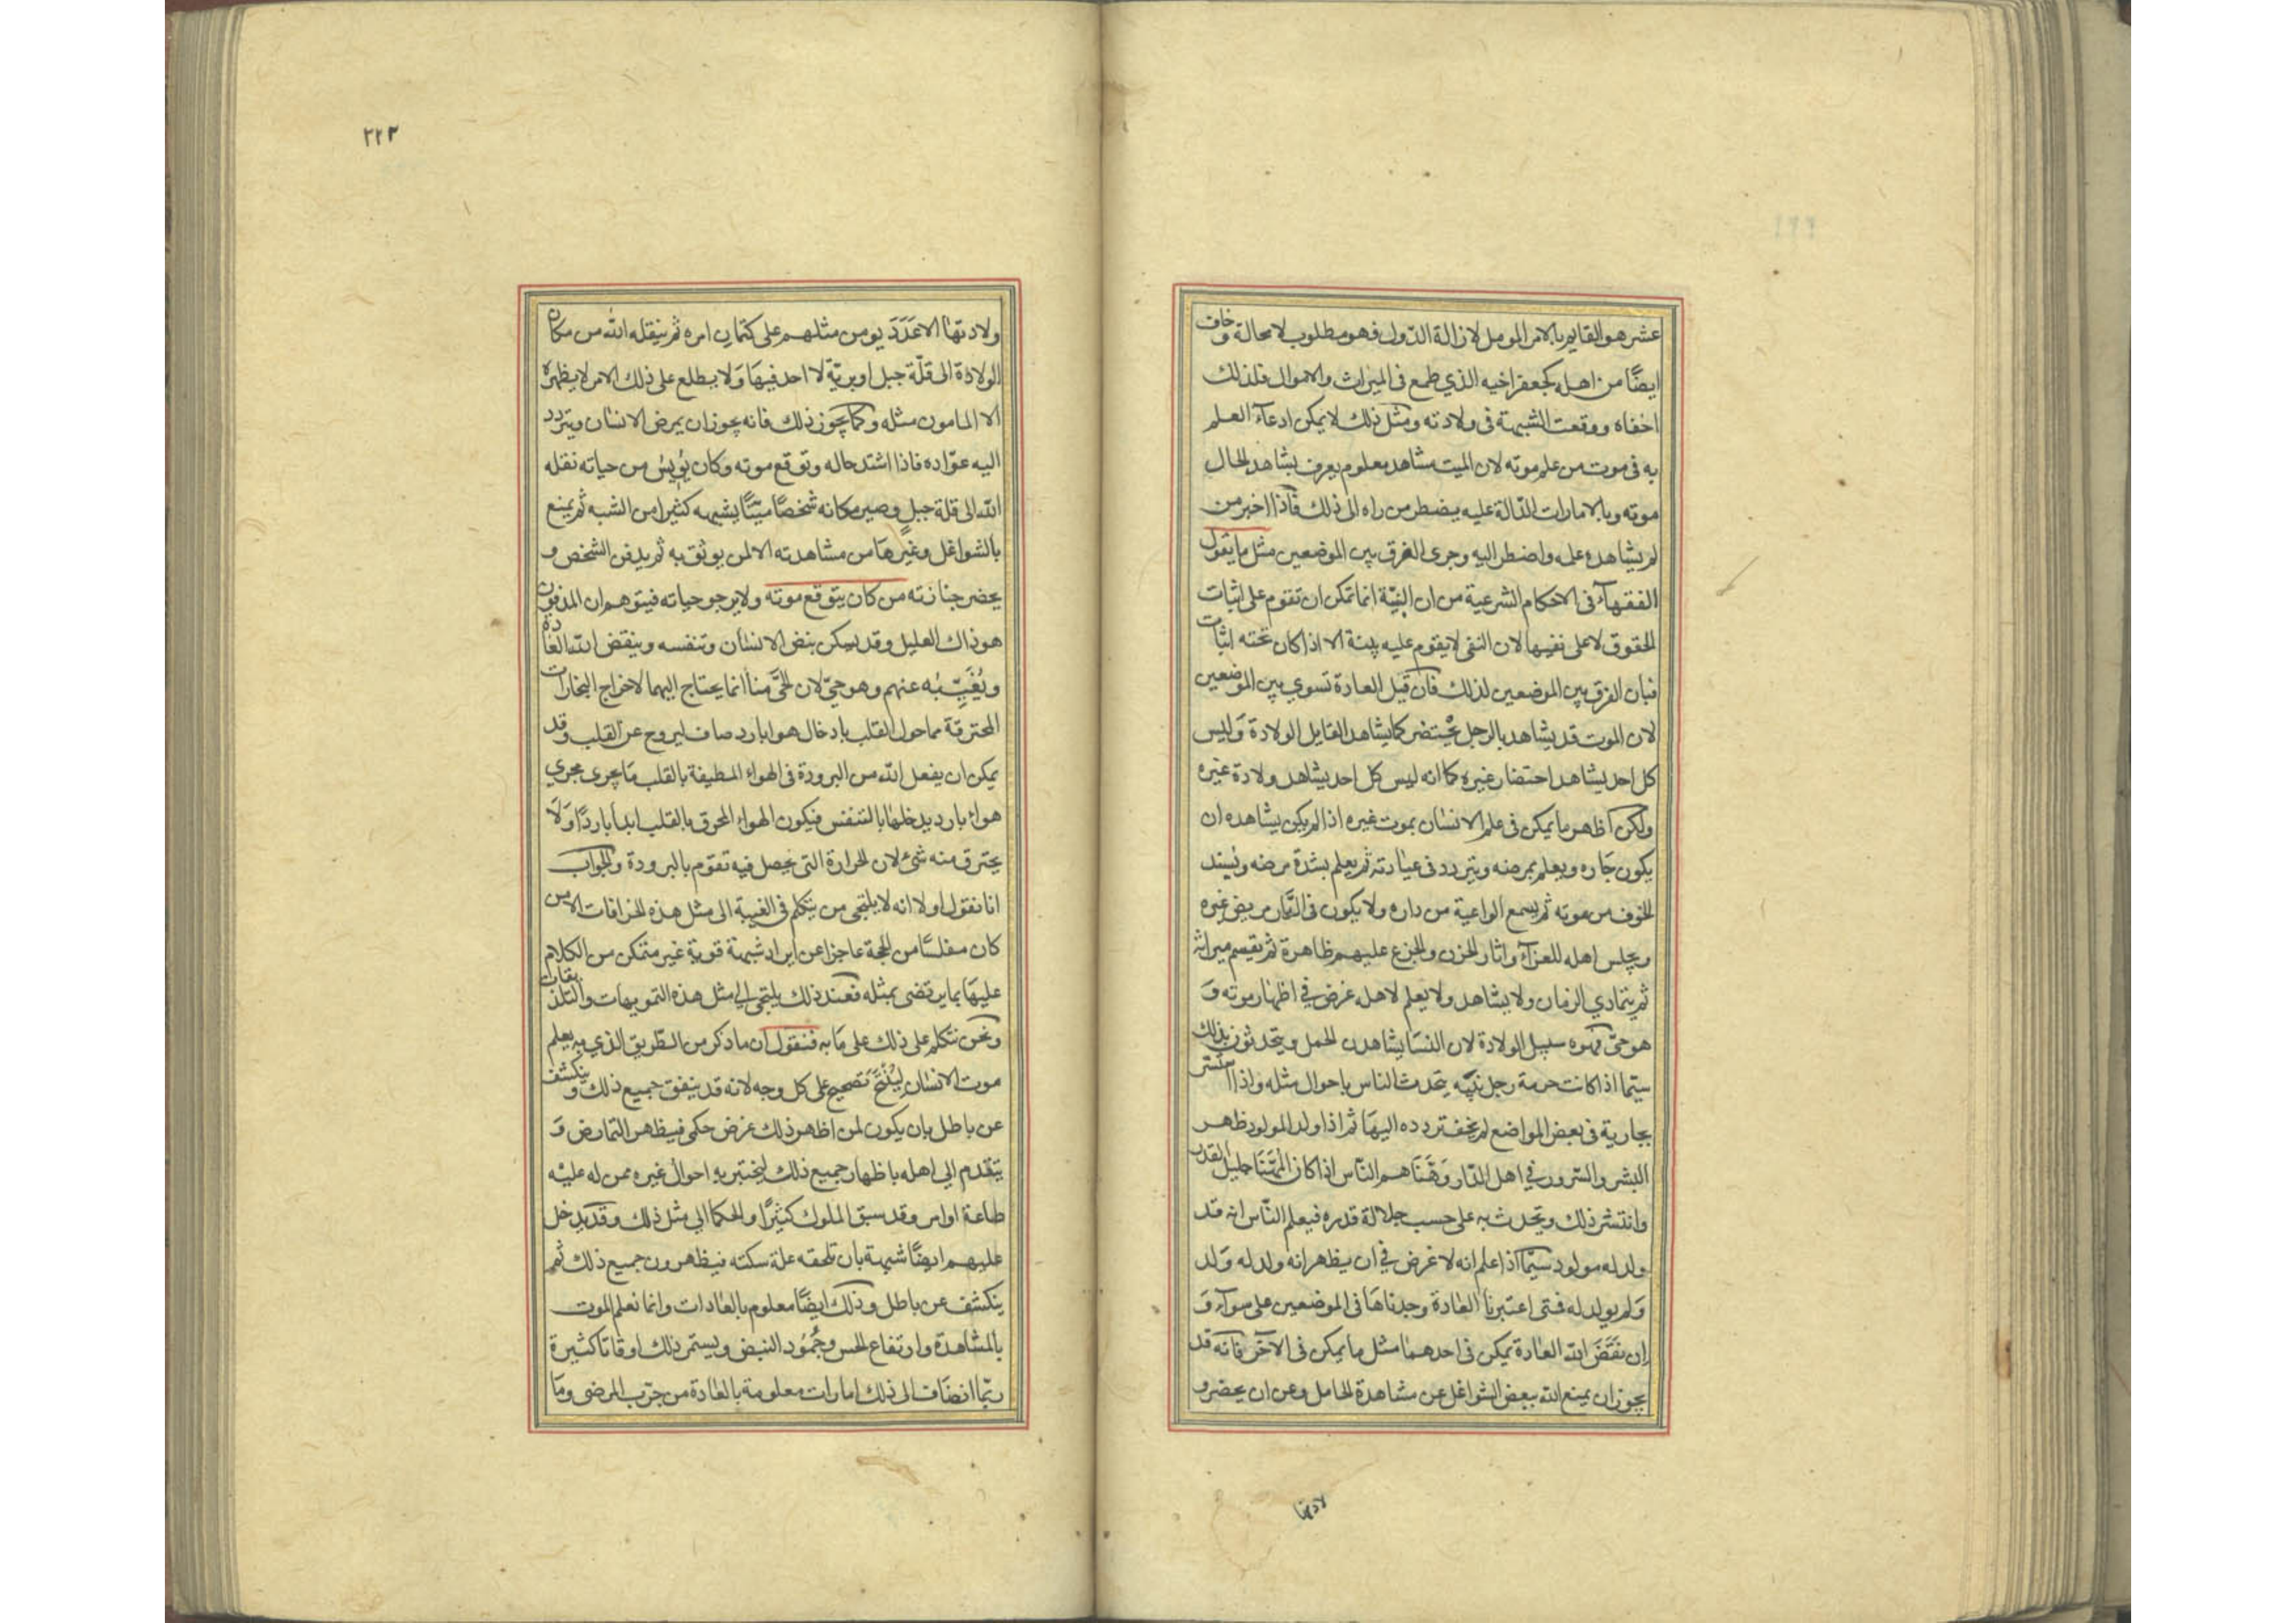 عشر هو القايم بالامر المومل لازالة الدول فهو مطلوب لا محالة وخاف
ايضًا من اهله كجعفر اخيه الذي طمع في الميراث والاموال فلذلك
اخفاه ووقعت الشبهة في ولادته ومثل ذلك لا يمكن ادعآء العلم
به في موت من علم موته لان الميت مشاهد معلوم يعرف بشاهد الحال
موته وبالامارات الدّالة عليه يضطر من راه الى ذلك فاذا اخبر من
لم يشاهده علمه واضطر اليه وجرى الفرق بين الموضعين مثل ما يقول
الفقهآء في الاحكام الشرعية من ان البيّنة انما تمكن ان تقوم على اثبات
الحقوق لا على نفيها لان النفى لا يقوم عليه بينة الا اذا كان تحته اثبات
فبان الفرق بين الموضعين لذلك فان قيل العادة تسوي بين الموضعين
لان الموت قد يشاهد بالرجل يحتضر كما يشاهد القابل الولادة وليس
كل احد يشاهد احتضار غيره كما انه ليس كل احد يشاهد ولادة غيره
ولكن اظهر ما يمكن في علم الانسٰان بموت غيره اذا لم يكن يشاهده ان
يكون جَاره ويعلم بمرضه ويتردد في عيادته ثم يعلم بشدة مرضه ويشتد
الخوف من موته ثم يسمع الواعية من داره ولا يكون في الدّار مريض غيره
ويجلس اهله للعزآء واثار الحزن والجزع عليهم ظاهرة ثم يقسم ميراثه
ثم يتمادي الزمان ولا يشاهد ولا يعلم لاهله غرض في اظهار موته و
هو حيّ فهذه سبيل الولادة لان النسَا يشاهدن الحمل ويتحدثون بذلك
سيّما اذا كانت حرمة رجل نبيّه يتحدث الناس باحوال مثله واذا استتر
بجارية في بعض المواضع لم يخف تردده اليهَا ثم اذا ولد المولود ظهر
البشر والسّرور في اهل الدّار وهَنّاهم النّاس اذا كان المهَنّا جليل القدر
وانتشر ذلك ويحدث به على حسب جلالة قدره فيعلم النّاس انه قد
ولد له مولود سيّما اذا علم انه لا غرض في ان يظهر انه ولد له وَلد
وَلم يولد له فمتى اعتبرنا العٰادة وجدناهَا في الموضعين على سوآء وَ
اِن نَقَضَ الله العٰادة يمكن في احدهمٰا مثل ما يمكن في الآخر فانه قد
يجوز ان يمنع الله ببعض الشواغل عن مشاهدة الحامل وعن ان يحضر و
لادتها
٢٢٣
ولادتهٰا الا عَدَدَ يومن مثلهم على كتمان امره ثم ينقله الله من مكان
الولادٰة الى قلّة جبل او بريّة لا احد فيهَا وَلا يطلع على ذلك الا من لا يظهره
الا المامون مثله وكما يجوز ذلك فانه يجوز ان يمرض الانسٰان ويتردد
اليه عوّاده فاذا اشتد حاله وتوقع موته وكان يؤيس من حياته نقله
الله الى قلة جبل وصير مكانه شخصًا ميّتًا يشبهه كثيرا من الشبه ثم يمنع
بالشواغل وغيرهَا من مشاهدته الا لمن يوثق به ثم يدفن الشخص و
يحضر جنازته من كان يتوقع موته ولا يرجو حياته فيتوهم ان المدفون
هو ذاك العليل وقد يسكن نبض الانسٰان وتنفسه وينقض الله العادة
ويُغَيّبُه عنهم وهو حيّ لان الحَّى منا انما يحتاج اليهما لاخراج البخارات
المحترقة مما حول القلب بادخال هوا بارد صاف ليروح عن القلب وقد
يمكن ان يفعل الله من البرودة في الهواء المطيفة بالقلب مَا يجرى مجرى
هواء بارد يدخلهٰا بالتنفس فيكون الهواء المحرق بالقلب ابدا باردًا وَلَا
يحترق منه شئ لان الحرارة التى يحصل فيه تقوم بالبرودة والجواب
انا نقول اولا انه لا يلتجى من يتكلم في الغيبة الى مثل هذه الخرافات الا من
كان مفلسًا من الحجة عاجزا عن ايراد شبهة قوية غير متمكن من الكلام
عليهَا بما يرتضى بمثله فعند ذلك يلتجى الى مثل هذه التمويهات والتلذيقات
ونحن نتكلم على ذلك على مَا به فنقول ان ما ذكر من الطّريق الذي به يعلم
موت الانسٰان ليسَ بصحيح على كل وجه لانه قد يتفق جميع ذلك وينكشف
عن باطل بان يكون لمن اظهر ذلك غرض حكمى فيظهر التمارض وَ
يتقدم الي اهله باظهار جميع ذلك ليختبر به احوال غيره ممن له عليْه
طاعة او امر وقد سبق الملوك كثيرًا والحكما الي مثل ذلك وقد يدخل
عليهم ايضًا شبهة بان تلحقه علة سكته فيظهرون جميع ذلك ثم
ينكشف عن باطل وذلك ايضًا معلوم بالعٰادات وانما نعلم الموت
بالمشاهدة وارتفاع الحس وجُمُود النبض ويستمر ذلك اوقاتا كثيرة
ربّما انضَاف الى ذلك امارات معلومة بالعٰادة من جرّب المرضى ومَا